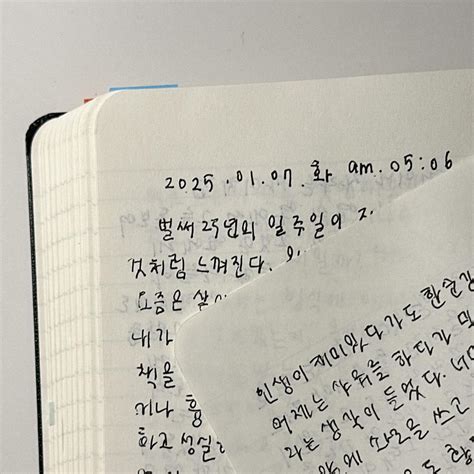 2025.01.07.화 am.05:06
벌써 25년의 일주일이
것처럼 느껴진다.
요즘은
내가
책을
거나
하고 성실
인생이 재미있다가도 한순간
어제는 샤워를 하다가
라는 생각이 들었다.
쓰고